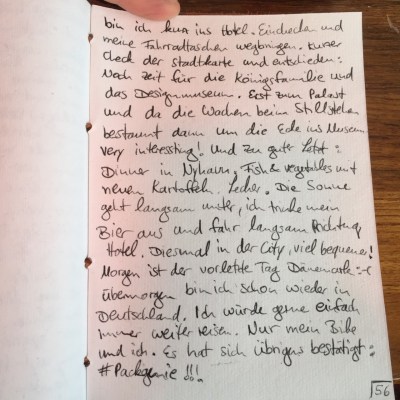 bin ich kurz ins Hotel. Einchecken und
meine Fahrradtaschen wegbringen. Kurzer
Check der Stadtkarte und entschieden:
Noch Zeit für die Königsfamilie und
das Designmuseum. Erst zum Palast
und da die Wachen beim Stillstehen
bestaunt dann um die Ecke ins Museum
very interessting! Und zu guter Letzt:
Dinner in Nyhavn. Fish & vegetables mit
neuen Kartoffeln. Lecker. Die Sonne
geht langsam unter, ich trinke mein
Bier aus und fahr langsam Richtung
Hotel. Diesmal in der City, viel bequemer!
Morgen ist der vorletzte Tag Dänemark :-(
übermorgen bin ich schon wieder in
Deutschland. Ich würde gerne einfach
immer weiter reisen. Nur mein Bike
und ich. Es hat sich übrigens bestätigt:
#Packgenie !!!
56